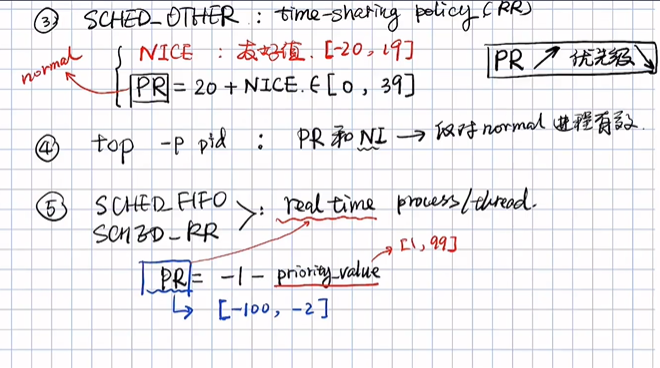 ③ SCHED_OTHER : time-sharing policy (RR)
normal
NICE : 友好值. [-20, 19]
PR = 20 + NICE. ∈ [0, 39]
PR ↗ 优先级 ↘
④ top -p pid : PR 和 NI → 仅对 normal 进程有效.
⑤ SCHED_FIFO
SCHED_RR
: real time process/thread.
[1, 99]
PR = -1 - priority_value
[-100, -2]